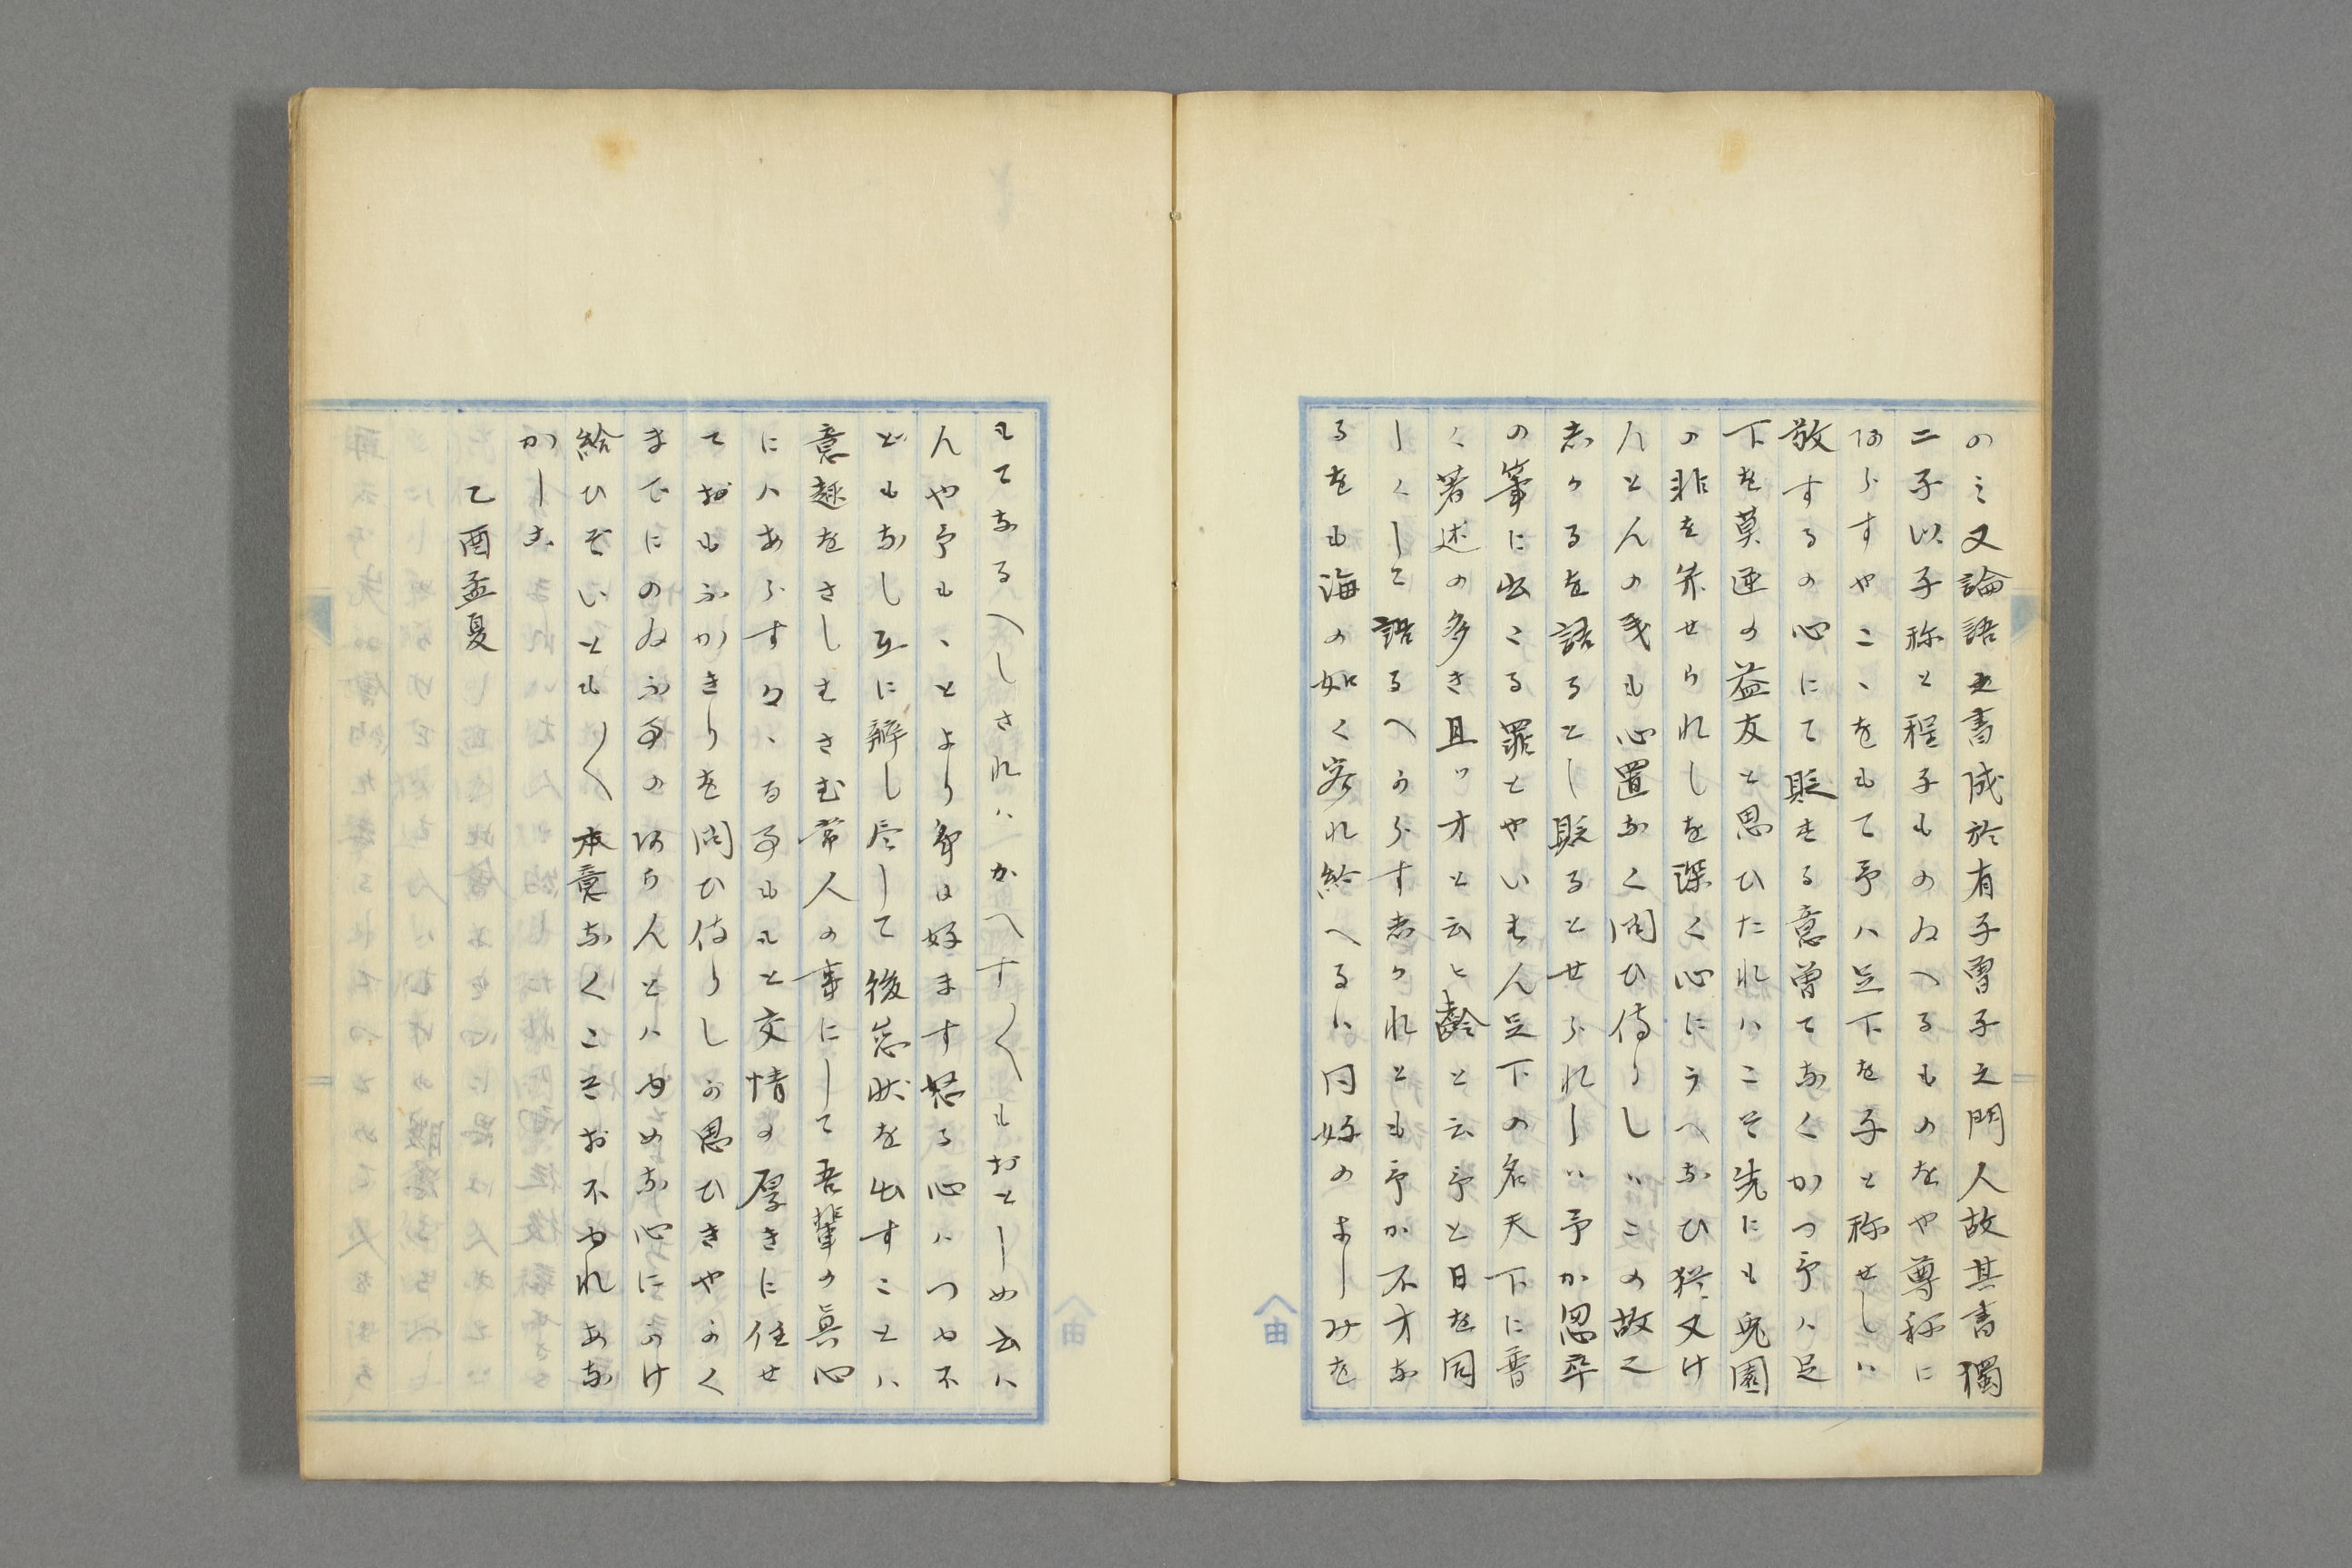 のミ又論語之書成於有子曽子之門人故其書獨
二子以子称と程子ものゐへるものをや尊称に
阿らすやこゝをもて予ハ足下を子と称せしハ
敬するの心にて貶する意曽てなくかつ予ハ足
下を莫逆の益友と思ひたれハこそ先にも兎園
の非を弁せられしを深く心にうへなひ猶又け
んとんの義も心置なく問ひ侍りしハこの故之
志かるを詰るとし貶るとせられしハ予か忽卒
の筆に出こる罪とやいはん足下の名天下に普
く著述の多き且ッ才と云ヒ齢と云予と日を同
しくして語るへからす志かれとも予か不才な
るをも海の如く容れ給へるハ同好のよしみを
もてなるへしされハかへす〱もおとしめ云ハ
んや予もゝとより争は好ます怒る心ハつや不
どもなし互に辨し尽して後怠状を出すことハ
意趣をさしはさむ常人の事にして吾輩の眞心
にハあらすかゝる事ももと交情の厚きに任せ
ておもふかきりを問ひ侍りしか思ひきやかく
まてにのゐふ事の阿らんとハゆめな心にかけ
給ひそいとも〱本意なくこそお不ゆれあな
かしこ
乙酉孟夏